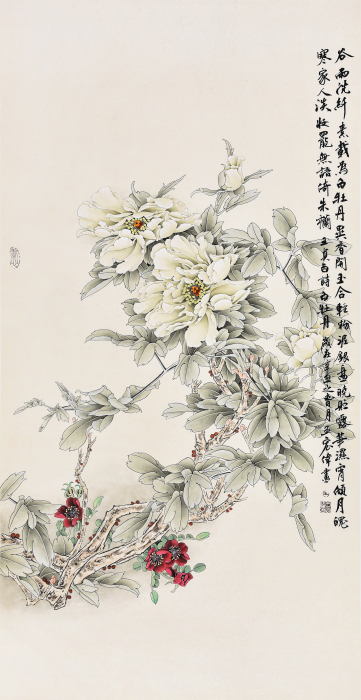 谷雨洗纤素裁為白牡丹異香開玉合輕粉泥銀盘晓贮露華濕宵傾月魄
寒家人淡妝罷無語倚朱欄 王貞白詩白牡丹 月王宏偉畫